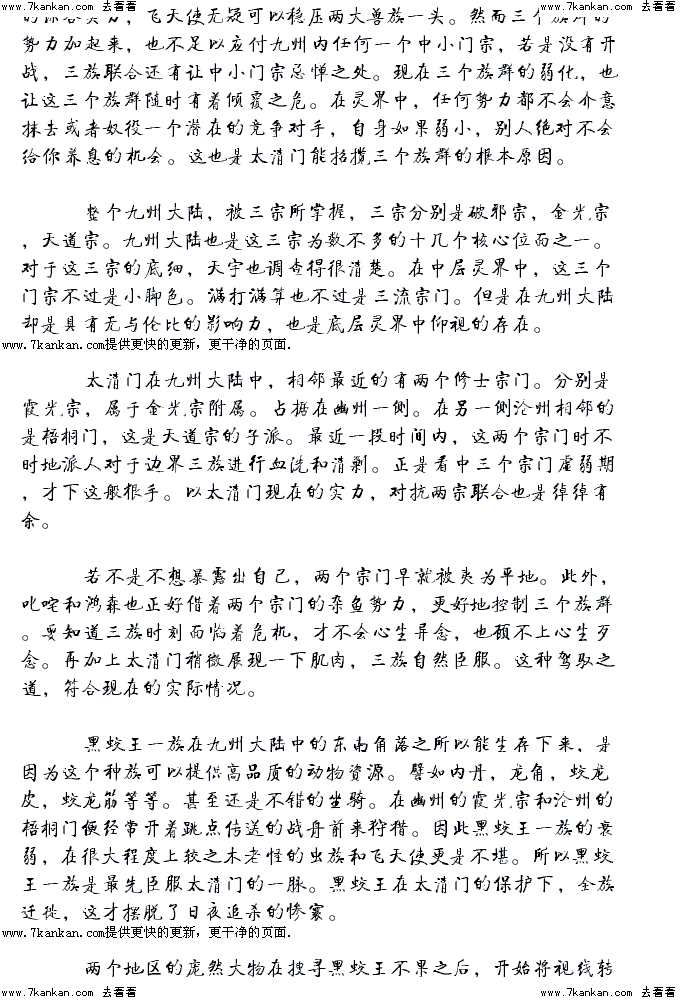 www.7kankan.com 去看看 www.7kankan.com 去看看
的综合实力，飞天使无疑可以稳压两大兽族一头。然而三个族群的
势力加起来，也不足以应付九州内任何一个中小门宗，若是没有开
战，三族联合还有让中小门宗忌惮之处。现在三个族群的弱化，也
让这三个族群随时有着倾覆之危。在灵界中，任何势力都不会介意
抹去或者奴役一个潜在的竞争对手，自身如果弱小，别人绝对不会
给你养息的机会。这也是太清门能招揽三个族群的根本原因。
整个九州大陆，被三宗所掌握，三宗分别是破邪宗，金光宗
，天道宗。九州大陆也是这三宗为数不多的十几个核心位面之一。
对于这三宗的底细，天宇也调查得很清楚。在中层灵界中，这三个
门宗不过是小脚色。满打满算也不过是三流宗门。但是在九州大陆
却是具有无与伦比的影响力，也是底层灵界中仰视的存在。
www.7kankan.com提供更快的更新，更干净的页面.
太清门在九州大陆中，相邻最近的有两个修士宗门。分别是
霞光宗，属于金光宗附属。占据在幽州一侧。在另一侧沧州相邻的
是梧桐门，这是天道宗的子派。最近一段时间内，这两个宗门时不
时地派人对于边界三族进行血洗和清剿。正是看中三个宗门虚弱期
，才下这般狠手。以太清门现在的实力，对抗两宗联合也是绰绰有
余。
若不是不想暴露出自己，两个宗门早就被夷为平地。此外，
叱咤和鸿森也正好借着两个宗门的杂鱼势力，更好地控制三个族群
。要知道三族时刻面临着危机，才不会心生异念，也顾不上心生歹
念。再加上太清门稍微展现一下肌肉，三族自然臣服。这种驾驭之
道，符合现在的实际情况。
黑蛟王一族在九州大陆中的东南角落之所以能生存下来，是
因为这个种族可以提供高品质的动物资源。譬如内丹，龙角，蛟龙
皮，蛟龙筋等等。甚至还是不错的坐骑。在幽州的霞光宗和沧州的
梧桐门便经常开着跳点传送的战舟前来狩猎。因此黑蛟王一族的衰
弱，在很大程度上较之木老怪的虫族和飞天使更是不堪。所以黑蛟
王一族是最先臣服太清门的一脉。黑蛟王在太清门的保护下，全族
迁徙，这才摆脱了日夜追杀的惨寰。
www.7kankan.com提供更快的更新，更干净的页面.
两个地区的庞然大物在搜寻黑蛟王不果之后，开始将视线转
www.7kankan.com 去看看 www.7kankan.com 去看看